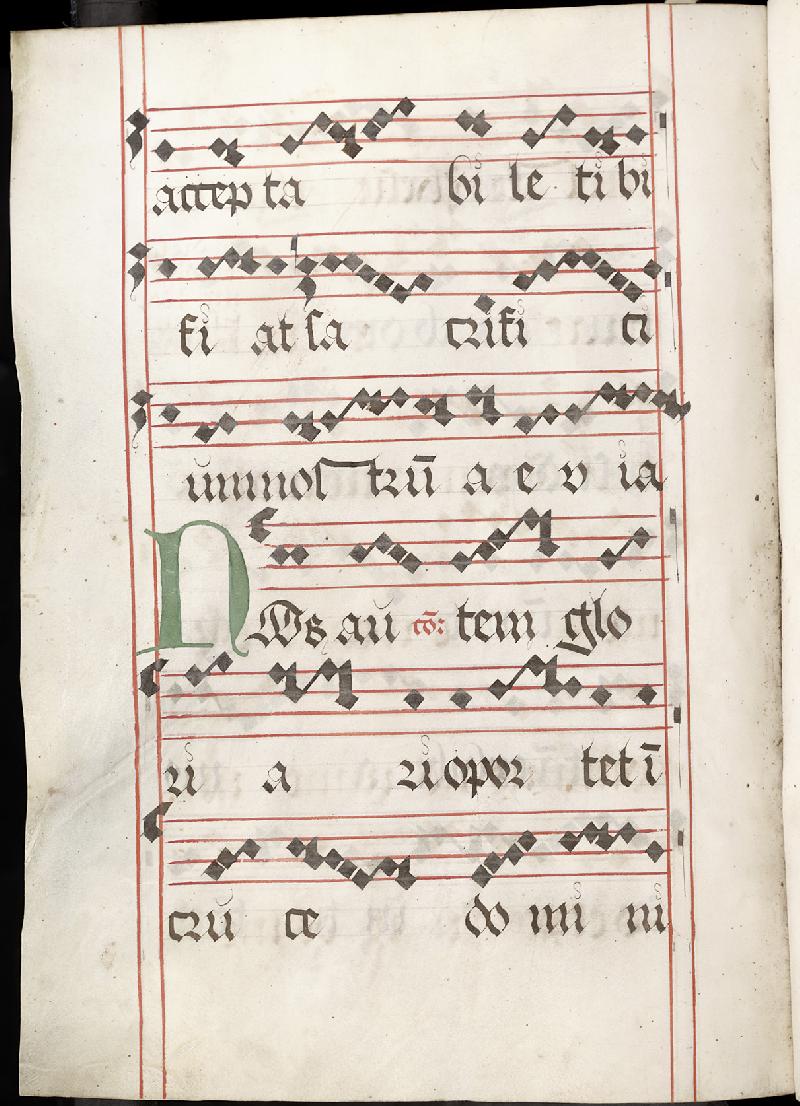 accepta bi le ti bi
fi at sa crifi ci
umnostrū a e v ia
Nos au cō: tem glo
ri a ri opor tet ī
cru ce do mi ni